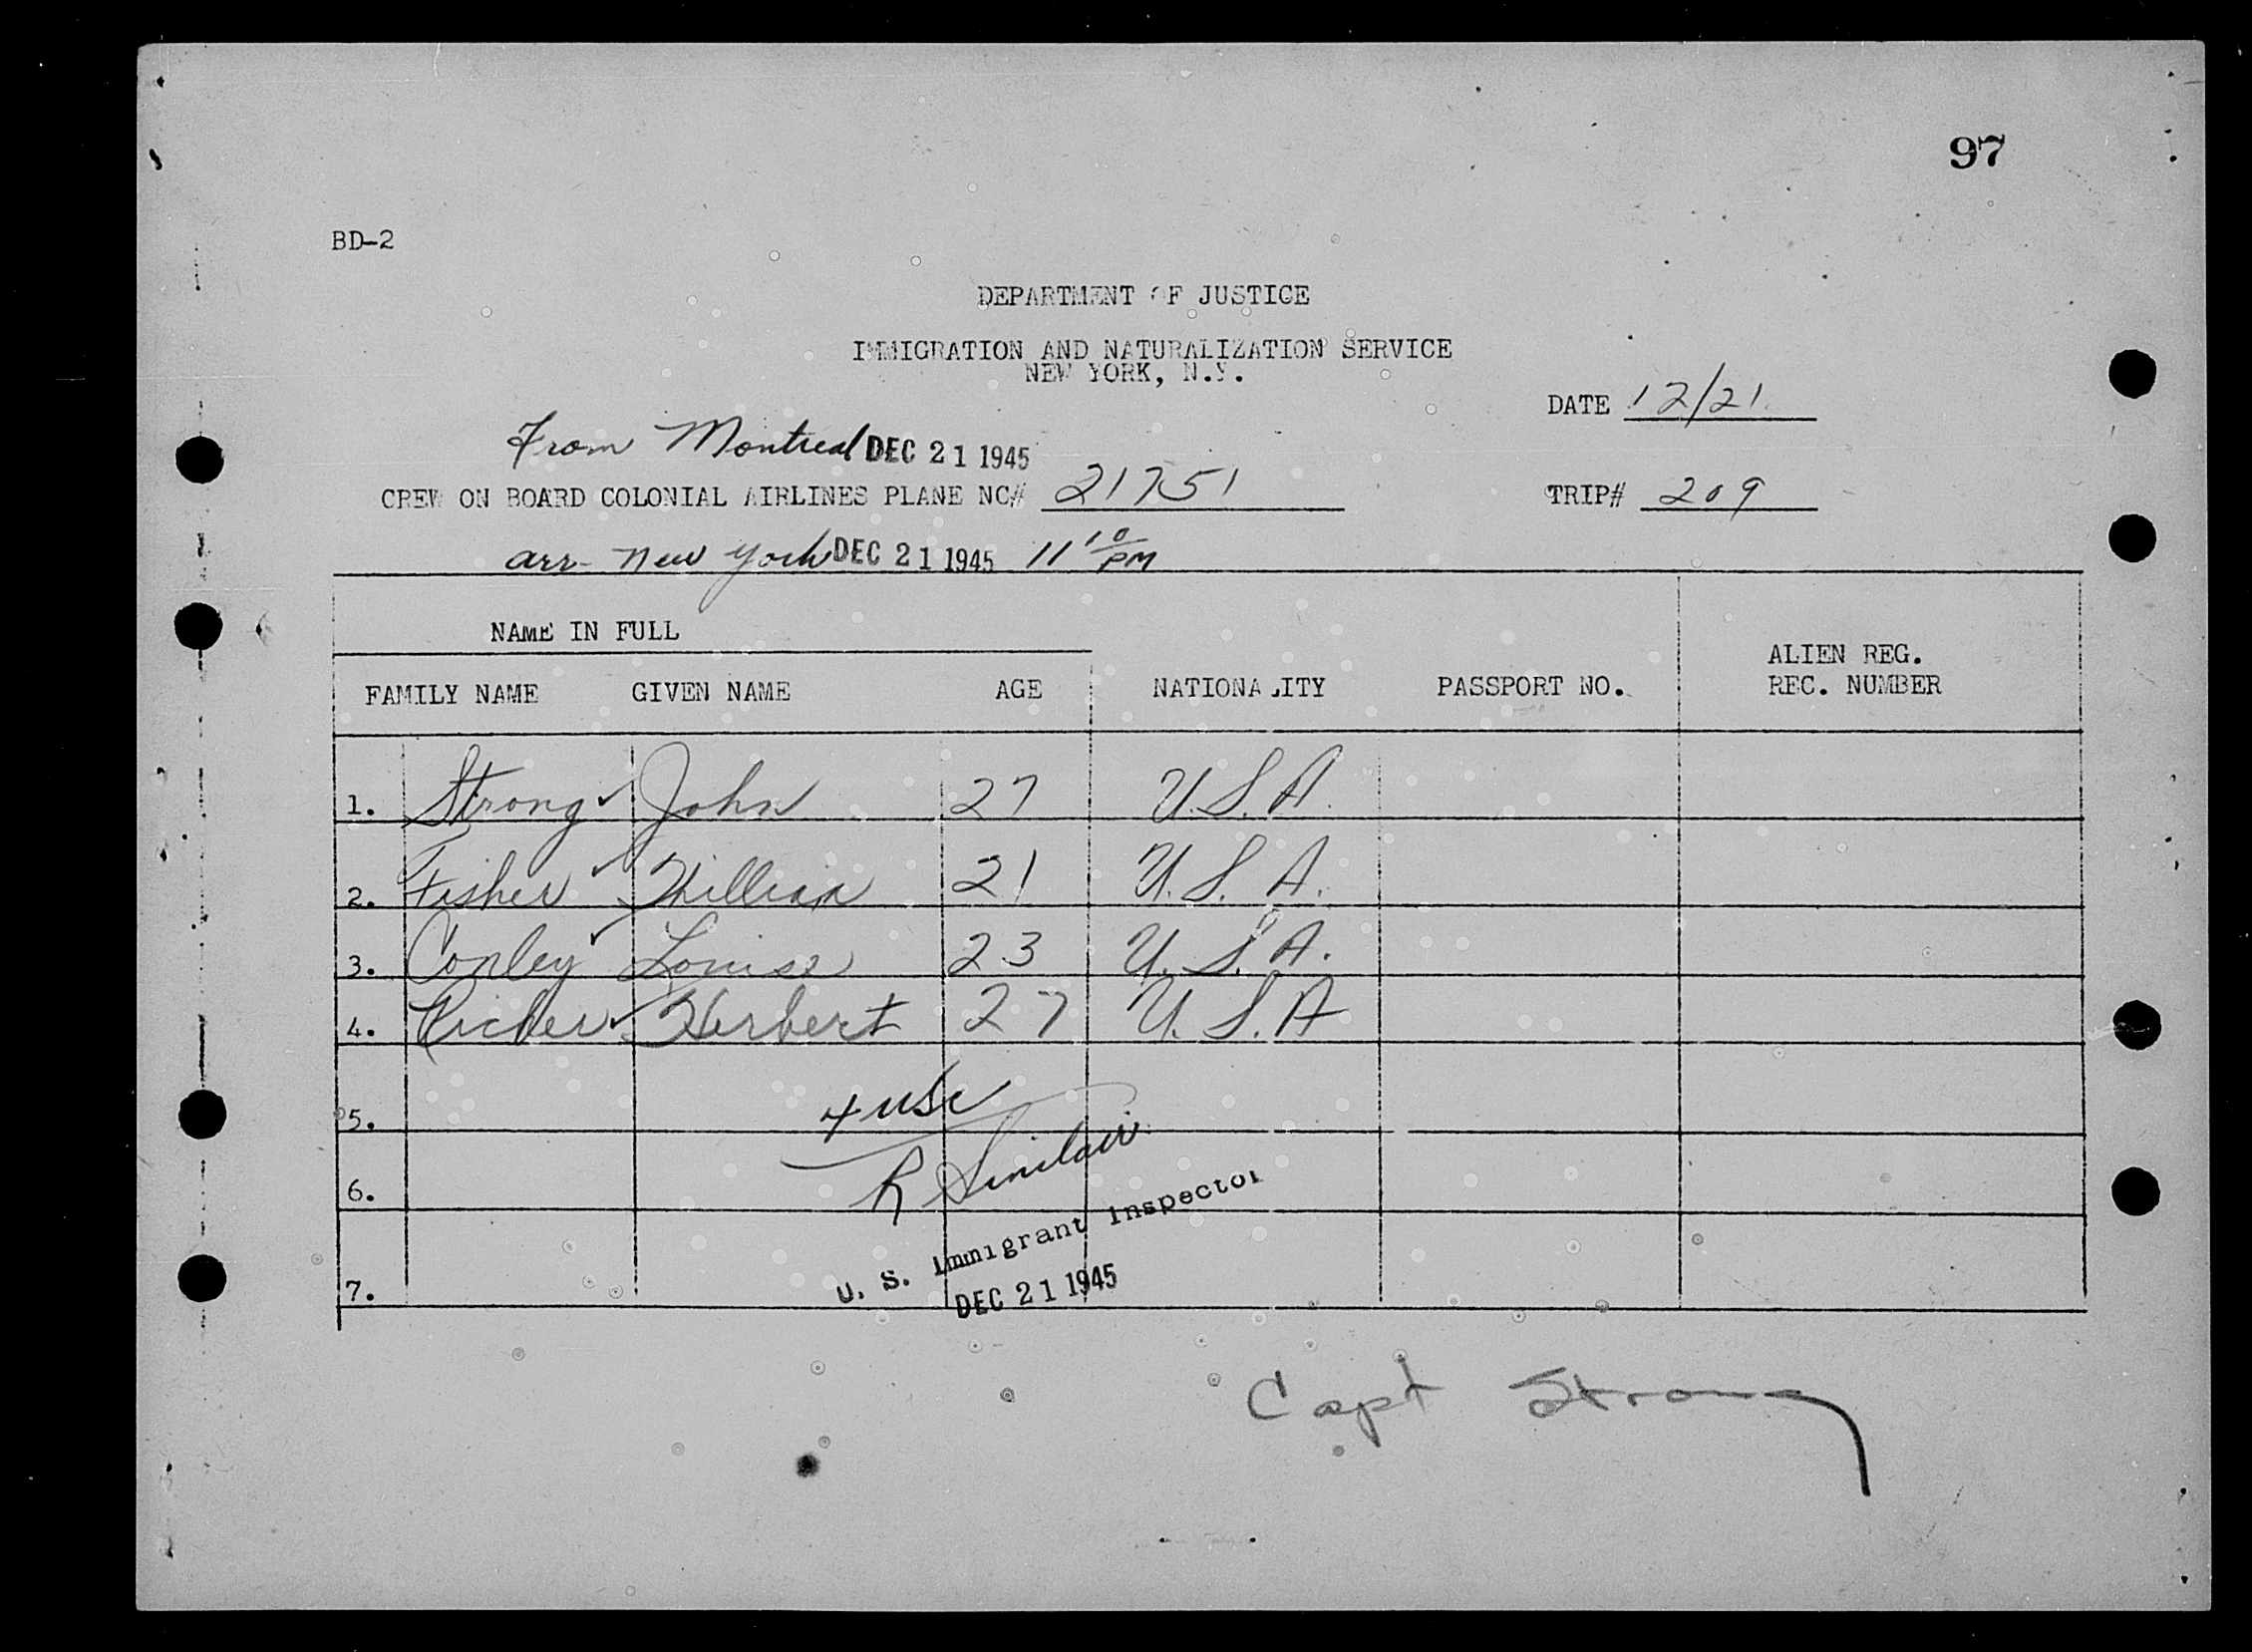 97
BD-2
DEPARTMENT OF JUSTICE
IMMIGRATION AND NATURALIZATION SERVICE
NEW YORK, N.Y.
DATE 12/21
From Montreal DEC 21 1945
CREW ON BOARD COLONIAL AIRLINES PLANE NC# 21751 TRIP# 209
arr- New York DEC 21 1945 11 10 PM
NAME IN FULL
FAMILY NAME GIVEN NAME AGE NATIONALITY PASSPORT NO. ALIEN REG. REC. NUMBER
1. Strong ✓ John 27 U.S.A.
2. Fisher ✓ William 21 U.S.A.
3. Conley ✓ Louise 23 U.S.A.
4. ✓ Herbert 27 U.S.A
5. 4 USC
6. R Sinclair
7. U. S. Immigrant Inspector
DEC 21 1945
Capt Strong